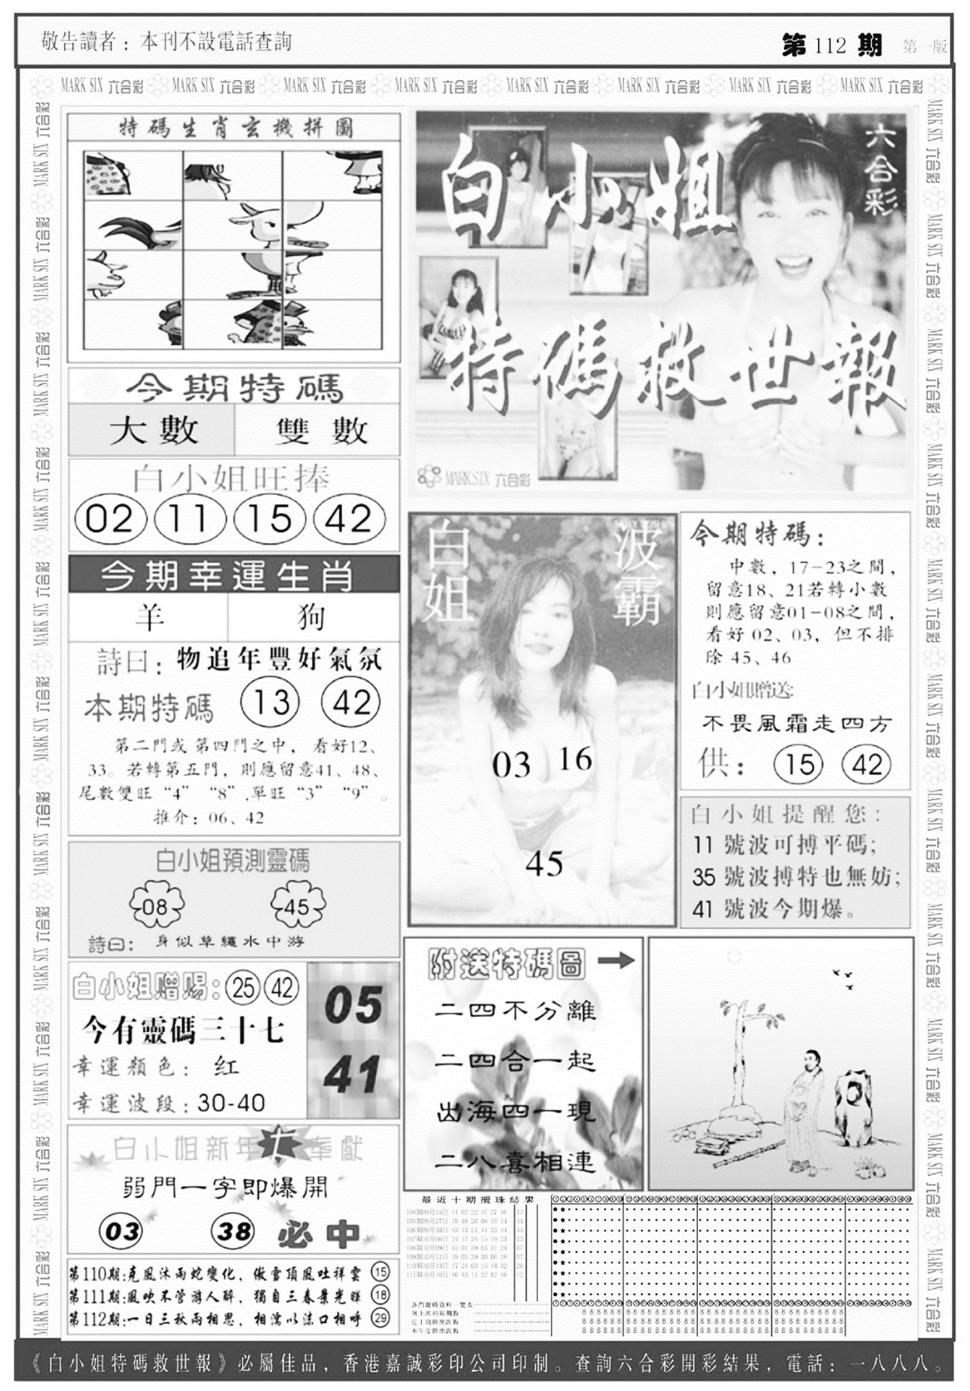 敬告讀者：本刊不設電話查詢
第 112 期 第一版
MARK SIX 六合彩 MARK SIX 六合彩 MARK SIX 六合彩 MARK SIX 六合彩 MARK SIX 六合彩 MARK SIX 六合彩 MARK SIX 六合彩 MARK SIX 六合彩
特碼生肖玄機拼圖
今期特碼
大數 雙數
白小姐旺捧
02 11 15 42
今期幸運生肖
羊 狗
詩曰：物追年豐好氣氛
本期特碼 13 42
第二門或 第四門之中，看好12、
33。若轉第五門，則應留意41、48、
尾數雙旺“4” “8”,單旺“3” “9”。
推介：06、42
白小姐預測靈碼
08 45
詩曰：身似草繩水中游
白小姐贈賜：25 42
今有靈碼三十七
幸運顏色：红
幸運波段：30-40
05
41
白小姐新年 奉獻
弱門一字即爆開
03 38 必中
第110期:克風沐雨蛇變化，傲雪頂風吐祥雲 15
第111期:風吹不管游人醉，獨自三春景光輝 18
第112期:一日三秋兩相思，相濡以沫口相呼 29
白小姐
六合彩
特碼救世報
MARK SIX 六合彩
白姐
波霸
03 16
45
今期特碼：
中數，17-23之間，
留意18、21若轉小數
則應留意01-08之間，
看好 02、03，但不排
除 45、46
白小姐贈送:
不畏風霜走四方
供： 15 42
白小姐提醒您：
11 號波可搏平碼；
35 號波搏特也無妨；
41 號波今期爆。
附送特碼圖
二四不分離
二四合一起
出海四一現
二八喜相連
最近十期攪珠結果
《白小姐特碼救世報》必屬佳品，香港嘉誠彩印公司印制。查詢六合彩開彩結果，電話：一八八八。